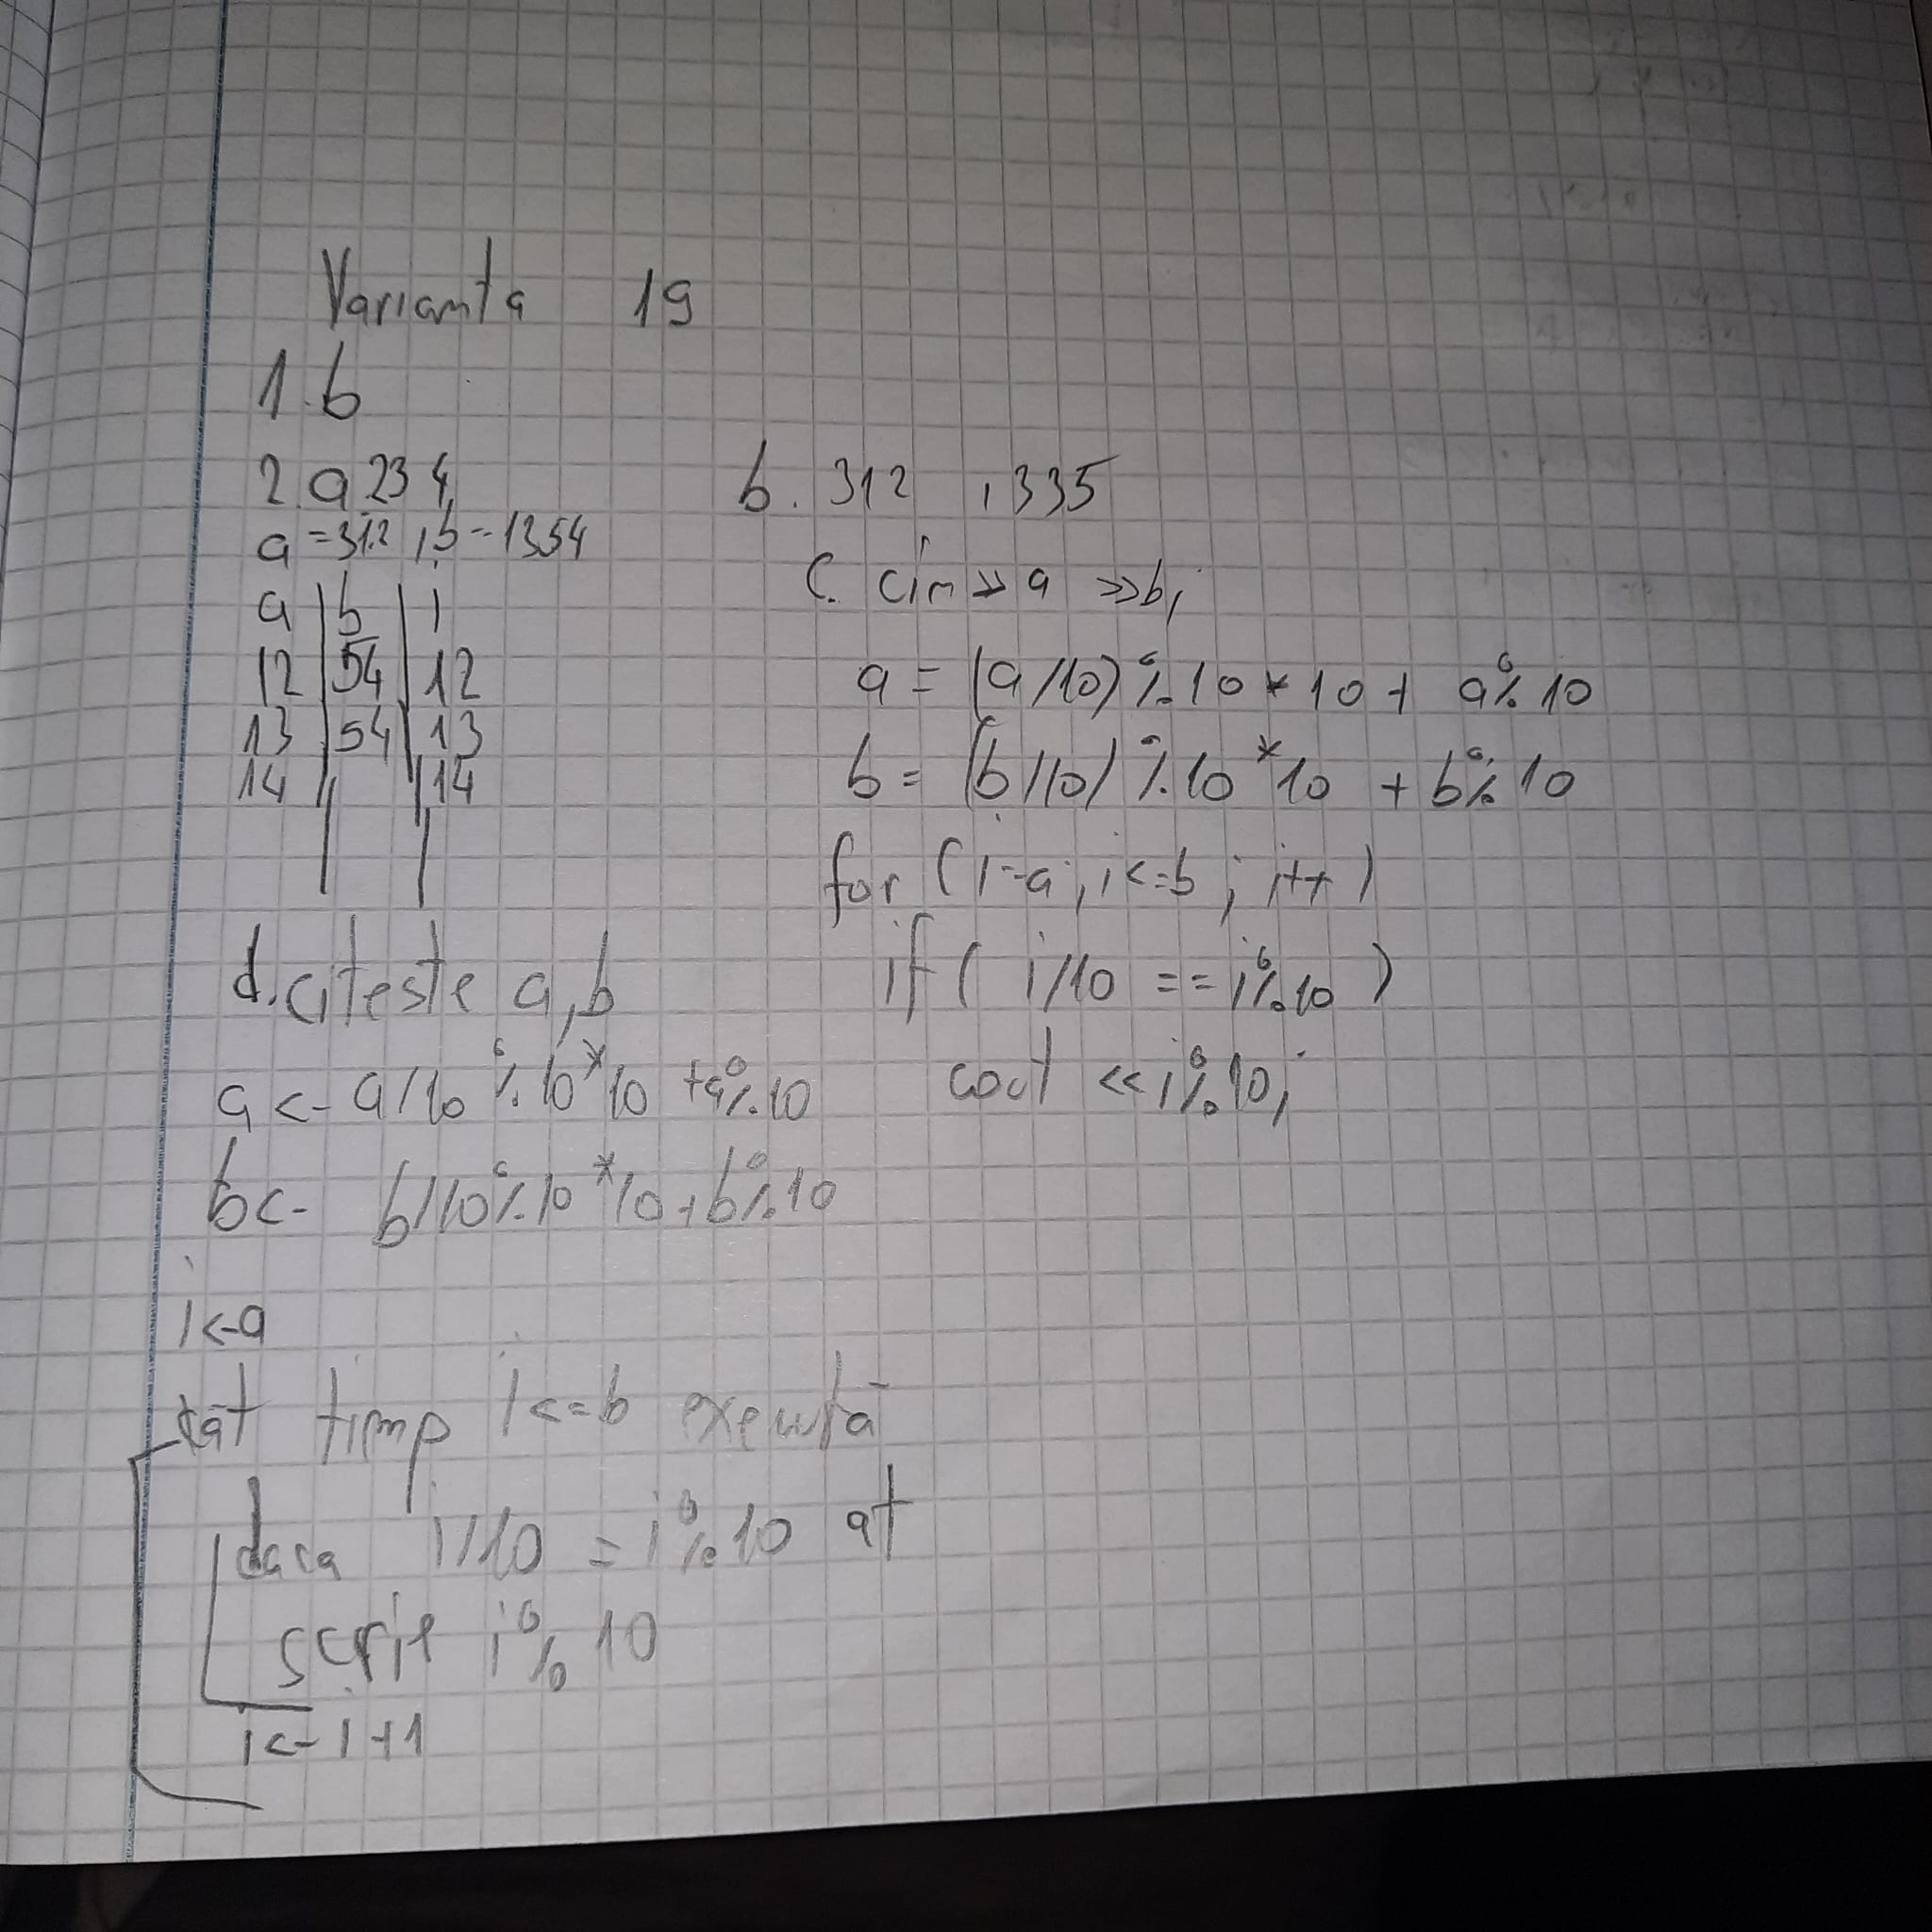 Varianta 19
1. b
2. a 234
a = 312, b = 1354
a | b | i
12 | 54 | 12
13 | 54 | 13
14 | | 14
b. 312, 1335
C. cin >> a >> b;
a = (a/10)%10*10 + a%10
b = (b/10)%10*10 + b%10
for (i=a; i<=b; i++)
if ( i/10 == i%10 )
cout << i%10;
d. citeste a,b
a <- a/10%10*10 +a%10
b <- b/10%10*10+b%10
i<-a
cât timp i<=b execută
daca i/10 = i%10 at
scrie i%10
i<-i+1